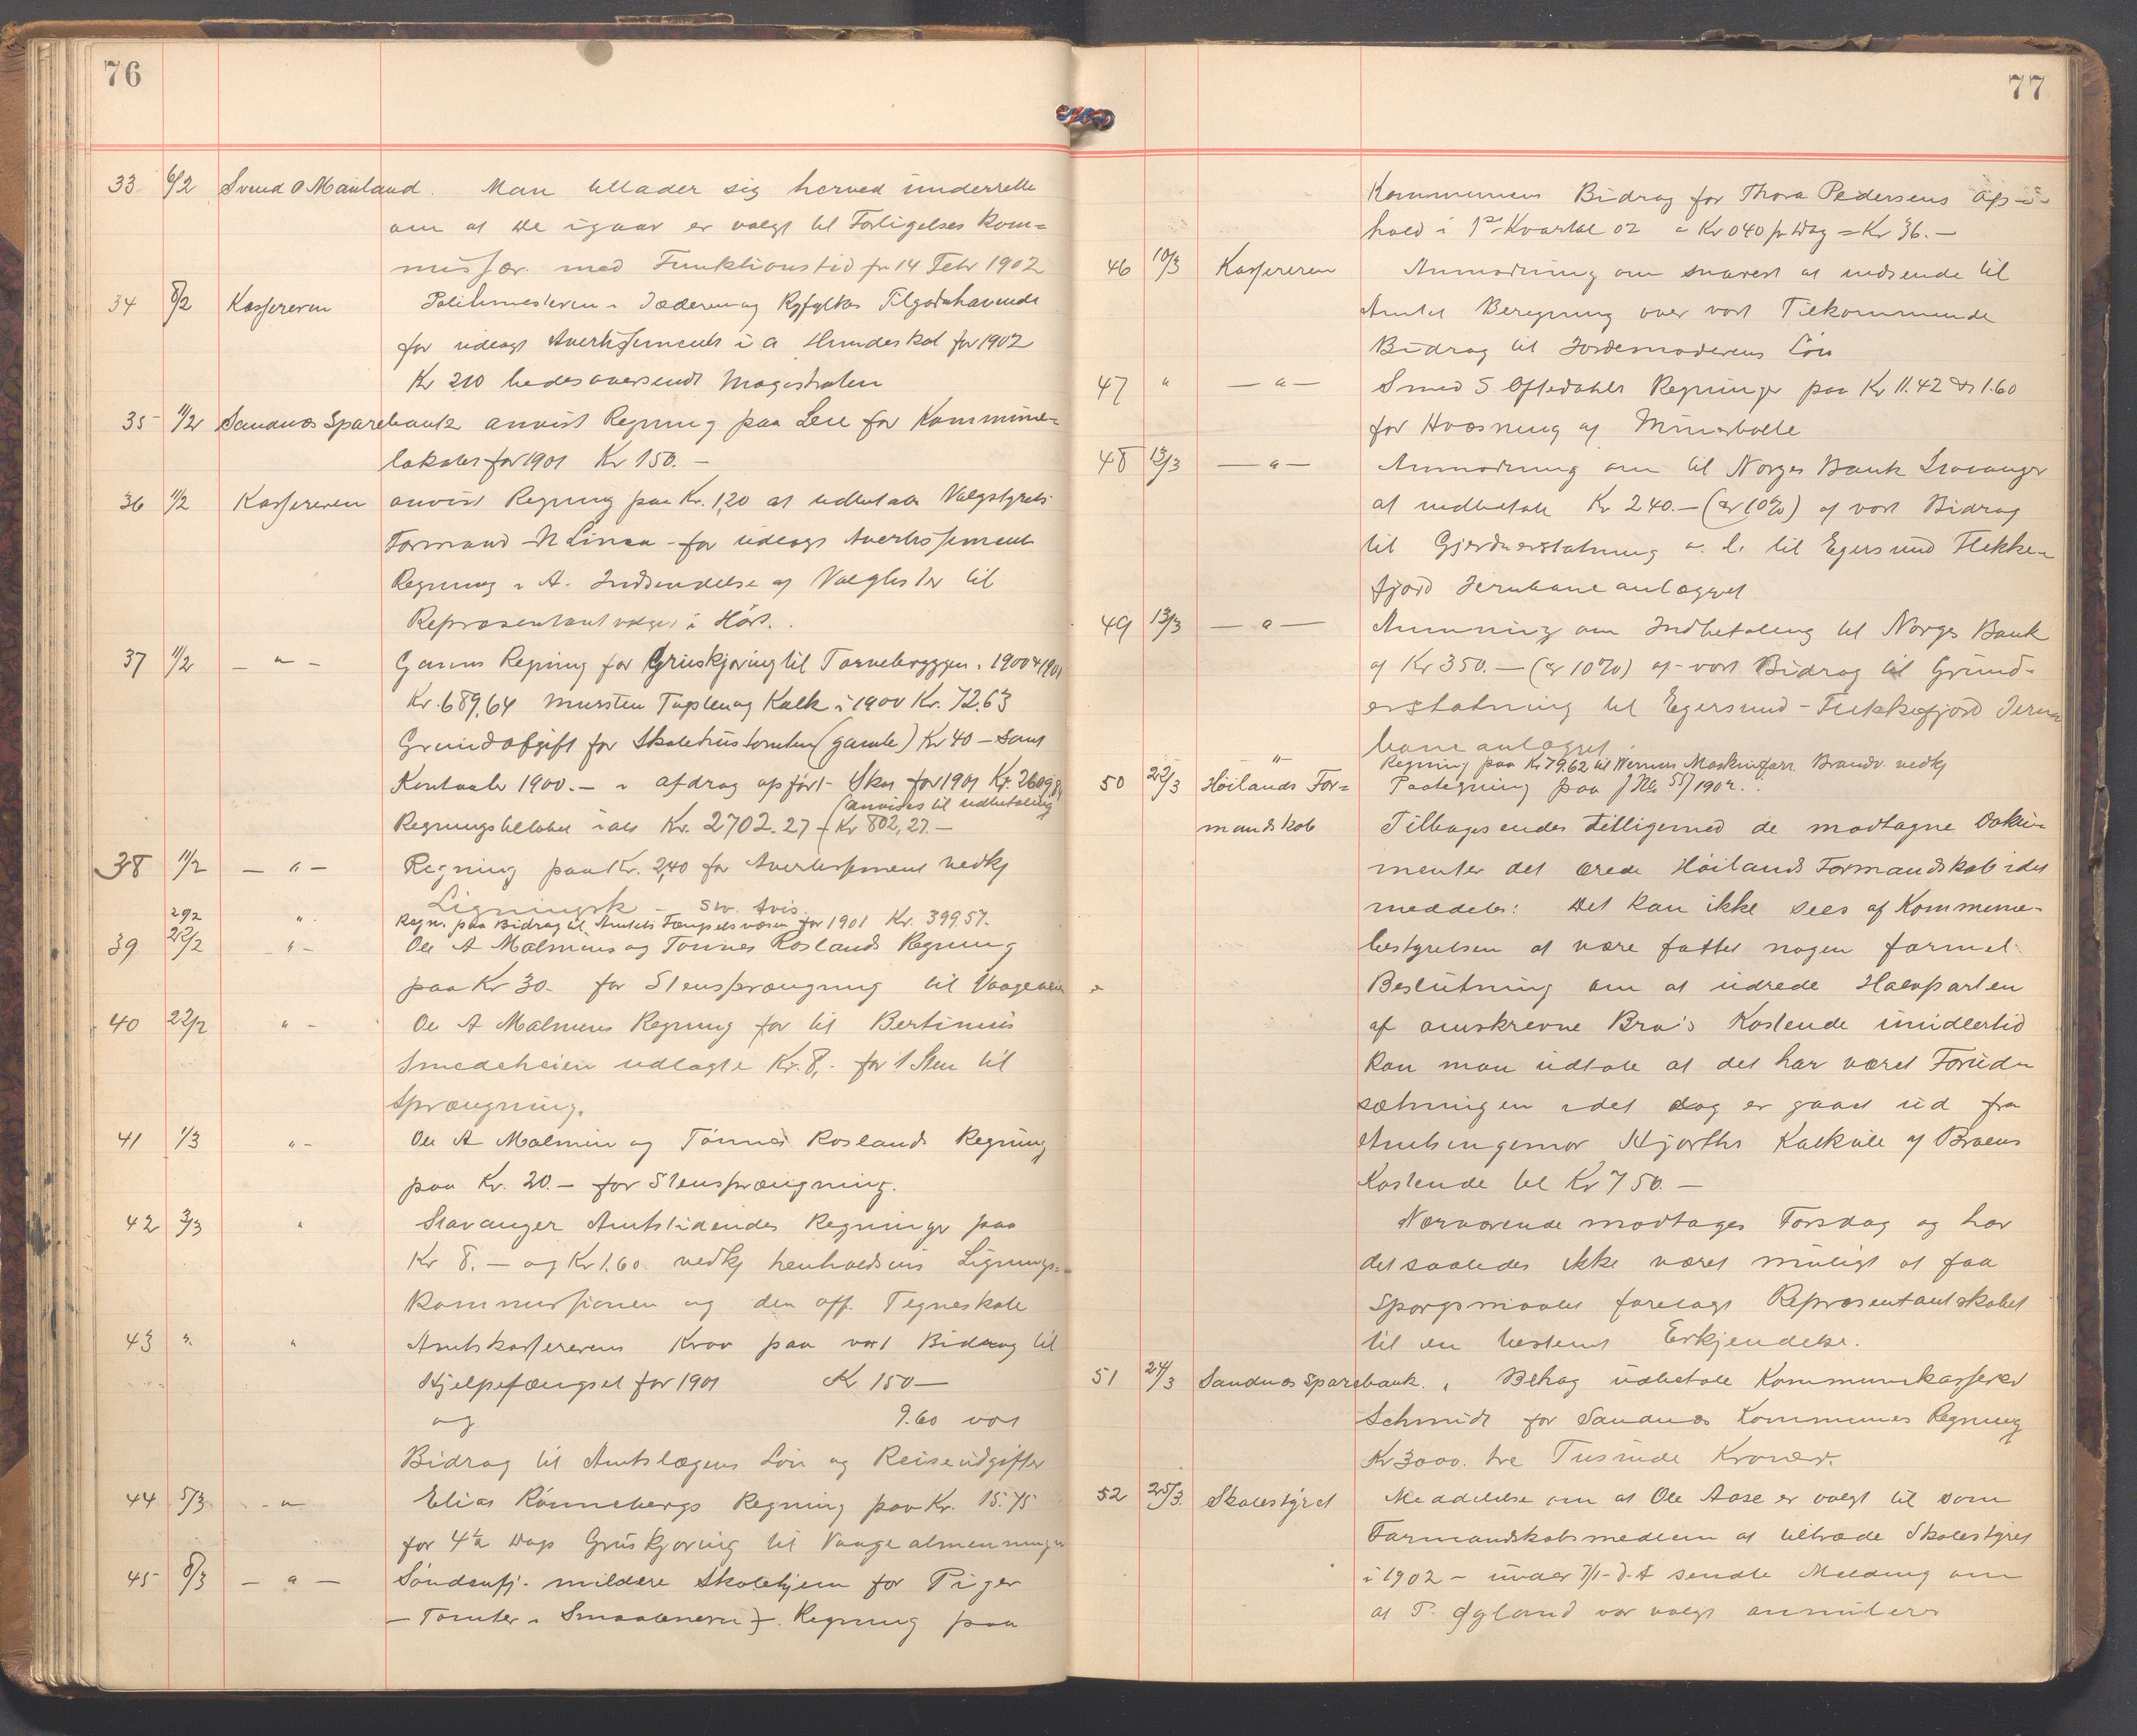 76
33 6/2 Svend O Mauland. Man tillader sig herved underrette
om at De igaar er valgt til Forligelses kom=
missær. med Funktionstid fr 14 Febr 1902
34 8/2 Kassereren Politimesteren i Jæderen og Ryfylkes Tilgodehavende
for udlagt Avertissement i A. Hundeskat for 1902
Kr 2,10 bedes oversendt Magistraten
35 11/2 Sandnæs Sparebank anvist Regning paa Leie for Kommune=
lokaler for 1901 Kr 150.–
36 11/2 Kassereren anvist Regning paa Kr. 1,20 at udbetale Valgstyrets
Formand N Linaa for udlagt Avertissement
Regning i A. Indsendelse af Valglister til
Repræsentantvalget i Høst.
37 11/2 – " – Ganns Regning for Gruskjøring til Tarnebryggen i 1900 & 1901
Kr. 689,64 Mursten Tagsten og Kalk i 1900 Kr. 72,63
Grundafgift for Skolehustomten (gamle) Kr 40 – samt
Kontanter 1900.– i afdrag opført Skat for 1901 Kr. 2609,8
(anvises til udbetaling
Regningsbeløbet ials Kr. 2702.27 – (Kr 802,27.–
38 11/2 – " – Regning paa Kr. 2,40 for Avertissement vedkj
Ligningsk – Stv. Avis.
20/2 " Regn. paa Bidrag til Amtets Fængselsvæsen for 1901 Kr. 399 57.
39 22/2 – " – Ole A Malmins og Tønnes Roslands Regning
paa Kr 30. for Stensprængning til Vaageveien
40 22/2 " – Ole A Malmins Regning for til Bertinius
Smedeheien udlagte Kr. 8,- for 1 Sten til
Sprængning.
41 1/3 " – Ole A Malmin og Tønnes Roslands Regning
paa Kr. 20.– for Stensprængning.
42 3/3 " Stavanger Amtstidendes Regninger paa
Kr 8.– og Kr 1.60 vedkj henholdsvis Lignings=
kommissionen og den off. Tegneskole
43 " " Amtskassererens Krav paa vort Bidrag til
Hjelpefængsel for 1901 Kr 150 –
og 9.60 vor
Bidrag til Amtslægens Løn og Reiseudgifter
44 5/3 – " Elias Rønnebergs Regning paa Kr. 15.75
for 4 1/2 Dags Gruskjøring til Vaagealmenningen
45 8/3 – " – Søndenfj. mildere Skolehjem for Piger
– Tomter i Smaalenene) – Regning paa
77
Kommunens Bidrag for Thora Pedersens Op=
hold i 1ste Kvartal 02 a Kr 0 40 pr Dag = Kr 36.–
46 10/3 Kassereren Anmodning om snarest at indsende til
Amtet Beregning over vort Tilkommende
Bidrag til Jordemoderens Løn
47 " – " – Smed S. Oftedahls Regninger paa Kr 11.42 & 1.60
for Hvæsning af Minerbolte
48 13/3 – " – Anmodning om til Norges Bank Stavanger
at indbetale Kr 240.– (er 10%) af vort Bidrag
til Gjerdeerstatning o. l. til Egersund Flekke=
fjord Jernbaneanlægget
49 13/3 – " – Anmning om Indbetaling til Norges Bank
af Kr 350.– (er 10%) af vort Bidrag til Grund=
erstatning til Egersund – Flekkefjord Jern=
baneanlægget
" Regning paa Kr 79.62 til Werners Maskinforr. Brandv. vedkj
50 22/3 Høilands For= Paategning paa J No 55/1902.
mandskab Tilbagesendes tilligemed de modtagne Doku=
menter det ærede Høilands Formandskab idet
meddeles: Det kan ikke sees af Kommune=
bestyrelsen at være fattet nogen formel
Beslutning om at udrede Halvparten
af omskrevne Bro's Kostende imidlertid
kan man udtale at det har været Forud=
sætningen idet dog er gaaet ud fra
Amtsingeniør Hjorths Kalkule af Broens
Kostende til Kr 750.–
Nærværende modtages Torsdag og har
det saaledes ikke været muligt at faa
Spørgsmaalet forelagt Repræsentantskabet
til en bestemt Erkjendelse.
51 24/3 Sandnæs Sparebank. Behag udbetale Kommunekasserer
Schmidt for Sandnæs Kommunes Regning
Kr 3000. tre Tusinde Kroner.
52 25/3. Skolestyret Meddelelse om at Ole Aase er valgt til som
Formandskabsmedlem at tiltræde Skolestyret
i 1902 – under 7/1 d. A sendte Melding om
at T. Øgland var valgt annuleres